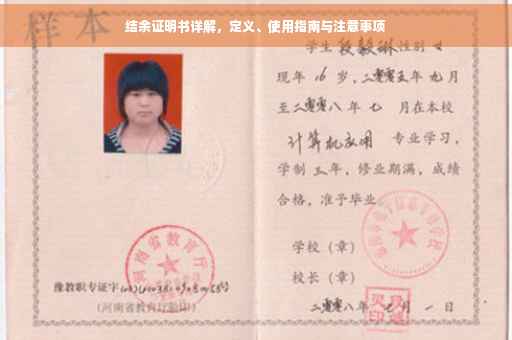 结余证明书详解，定义、使用指南与注意事项
样本
学生段毅琳性别女
现年16岁，二零零五年九月
至二零零八年七月在本校
计算机应用 专业学习，
学制三年，修业期满，成绩
合格，准予毕业
学校（章）
校长（章）
二零零八年七月一日
河南省教育厅
豫教职专证字
（河南省教育厅验印）